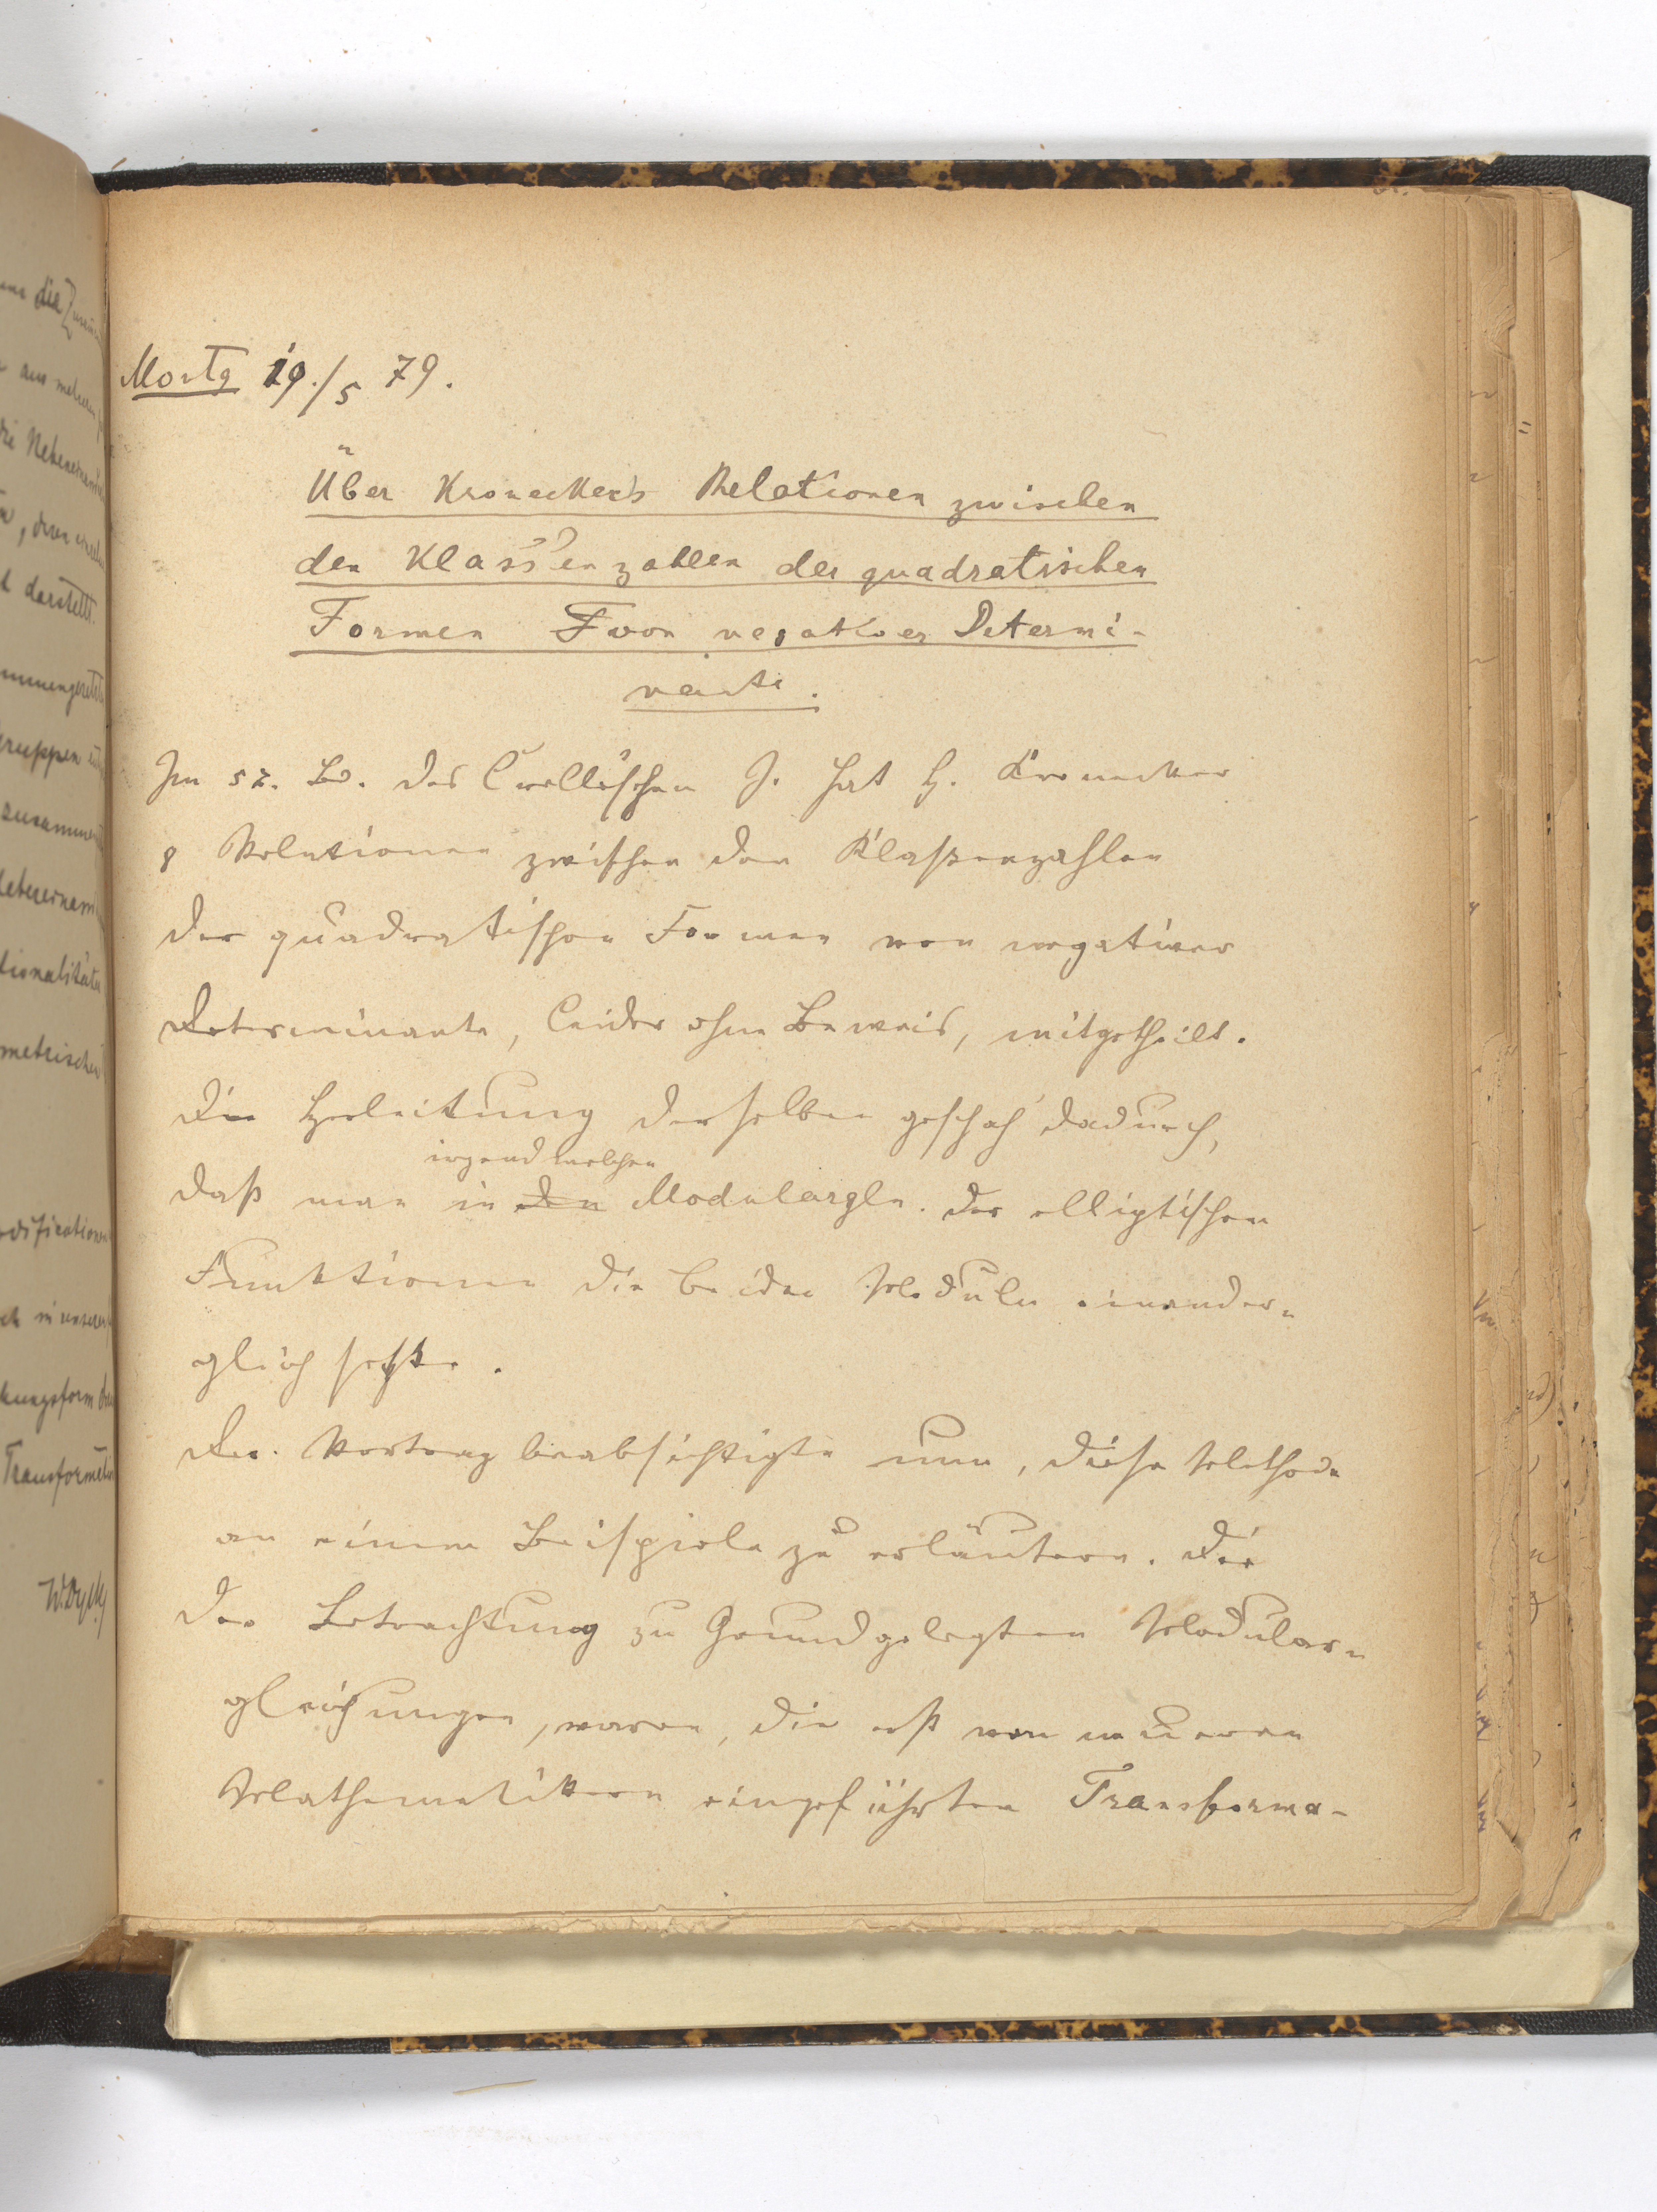 die
aus mehreren
die
, deren
darstellt.
zusammen
metrischen
in unserer
W. Dyck
Montg 19./5 79.
Über Kronecker's Relationen zwischen
den Klassenzahlen der quadratischen
Formen von negativer Determi-
nante.
Im 57. Bd. des Crelle'schen J. hat H. Kronecker
8 Relationen zwischen den Klaßenzahlen
der quadratischen Formen von negativer
Determinante, leider ohne Beweis, mitgetheilt.
Die Herleitung derselben geschah dadurch,
irgend welchen
daß man in den Modulargln. der elliptischen
Funktionen die beiden Moduln einander-
gleich setzte.
Der Vortrag beabsichtigte nun, diese Methode
an einem Beispiele zu erläutern. Die
der Betrachtung zu Grund gelegten Modular-
gleichungen, waren, die erst von neueren
Mathematikern eingeführten Transforma-